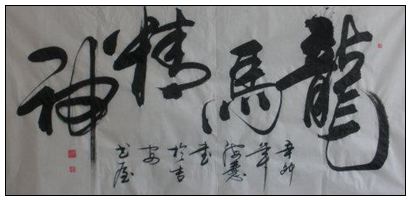 龍馬精神
辛卯
年
書
於吉
安